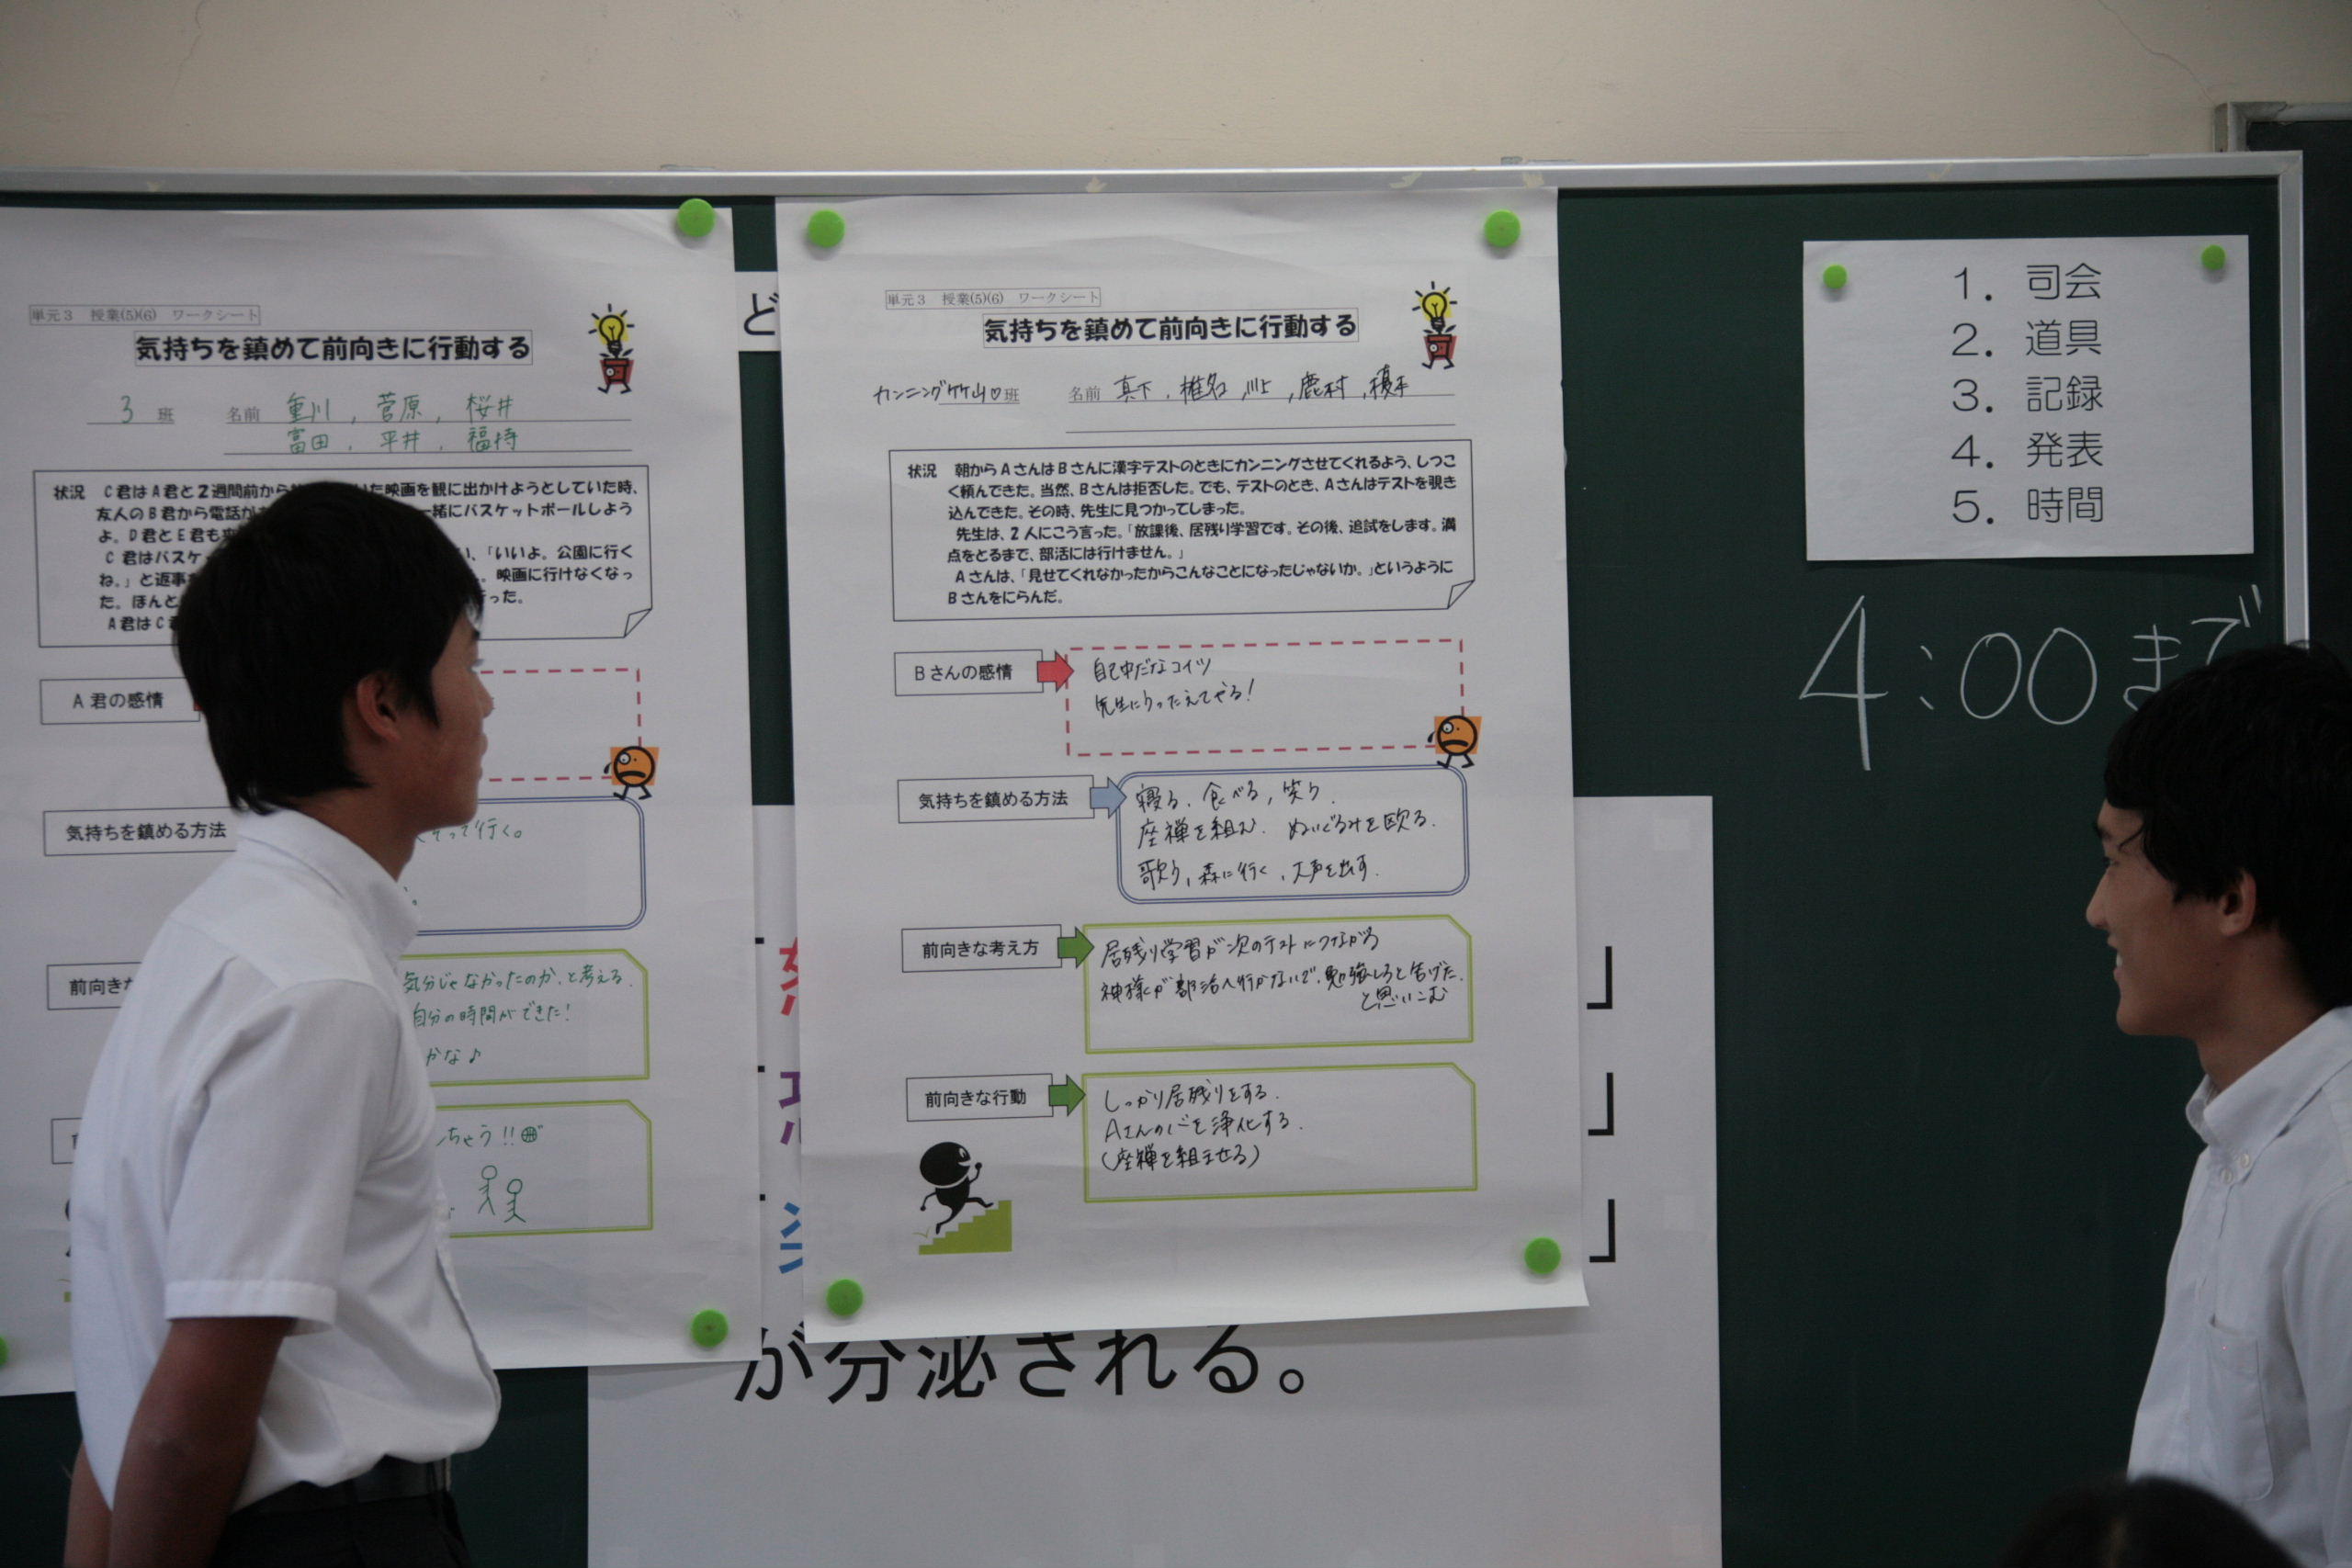 単元3 授業(5)(6) ワークシート
気持ちを鎮めて前向きに行動する
3 班 名前 重川, 菅原, 桜井
富田. 平井. 福待
状況 C君はA君と2週間前から た映画を観に出かけようとしていた時、
友人のB君から電話が 一緒にバスケットボールしよう
よ。D君とE君も
C君はバスケ 、「いいよ。公園に行く
ね。」と返事 。映画に行けなくなっ
た。ほんと った。
A君はC
A君の感情
気持ちを鎮める方法
って行く。
前向き
気分じゃなかったのか、と考える.
自分の時間ができた!
かな♪
ちゃう!!
ど
単元3 授業(5)(6) ワークシート
気持ちを鎮めて前向きに行動する
カンニング竹山♡班 名前 真下, 椎名, 川上, 鹿村, 榎本
状況 朝からAさんはBさんに漢字テストのときにカンニングさせてくれるよう、しつこ
く頼んできた。当然、Bさんは拒否した。でも、テストのとき、Aさんはテストを覗き
込んできた。その時、先生に見つかってしまった。
先生は、2人にこう言った。「放課後、居残り学習です。その後、追試をします。満
点をとるまで、部活には行けません。」
Aさんは、「見せてくれなかったからこんなことになったじゃないか。」というように
Bさんをにらんだ。
Bさんの感情
自己中だなコイツ
先生にうったえてやる!
気持ちを鎮める方法
寝る, 食べる, 笑う.
座禅を組む. ぬいぐるみを殴る.
歌う, 森に行く, 大声を出す.
前向きな考え方
居残り学習が次のテストにつながる
神様が部活へ行かないで、勉強しろと告げた.
と思いこむ
前向きな行動
しっかり居残りをする.
Aさんの心を浄化する.
(座禅を組ませる)
「 」
「 」
「 」
が分泌される。
1. 司会
2. 道具
3. 記録
4. 発表
5. 時間
4:00まで